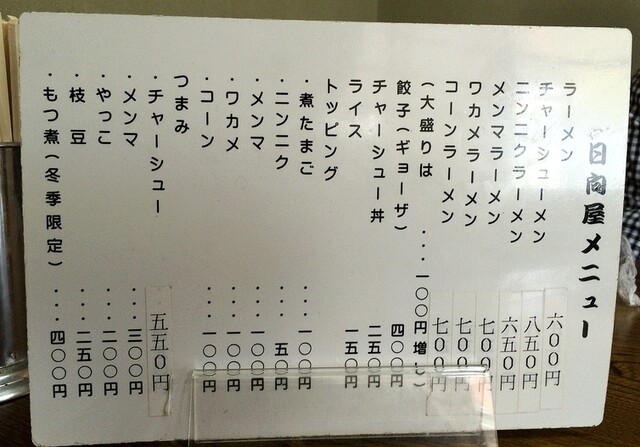 日向屋メニュー
ラーメン 六〇〇円
チャーシューメン 八五〇円
ニンニクラーメン 六五〇円
メンマラーメン 七〇〇円
ワカメラーメン 七〇〇円
コーンラーメン 七〇〇円
(大盛りは ・・・一〇〇円増し)
餃子(ギョーザ) 四〇〇円
チャーシュー丼 二五〇円
ライス 一五〇円
トッピング
・煮たまご ・・・一〇〇円
・ニンニク ・・・五〇円
・メンマ ・・・一〇〇円
・ワカメ ・・・一〇〇円
・コーン ・・・一〇〇円
つまみ
・チャーシュー 五五〇円
・メンマ ・・・三〇〇円
・やっこ ・・・二〇〇円
・枝豆 ・・・二五〇円
・もつ煮(冬季限定) ・・・四〇〇円